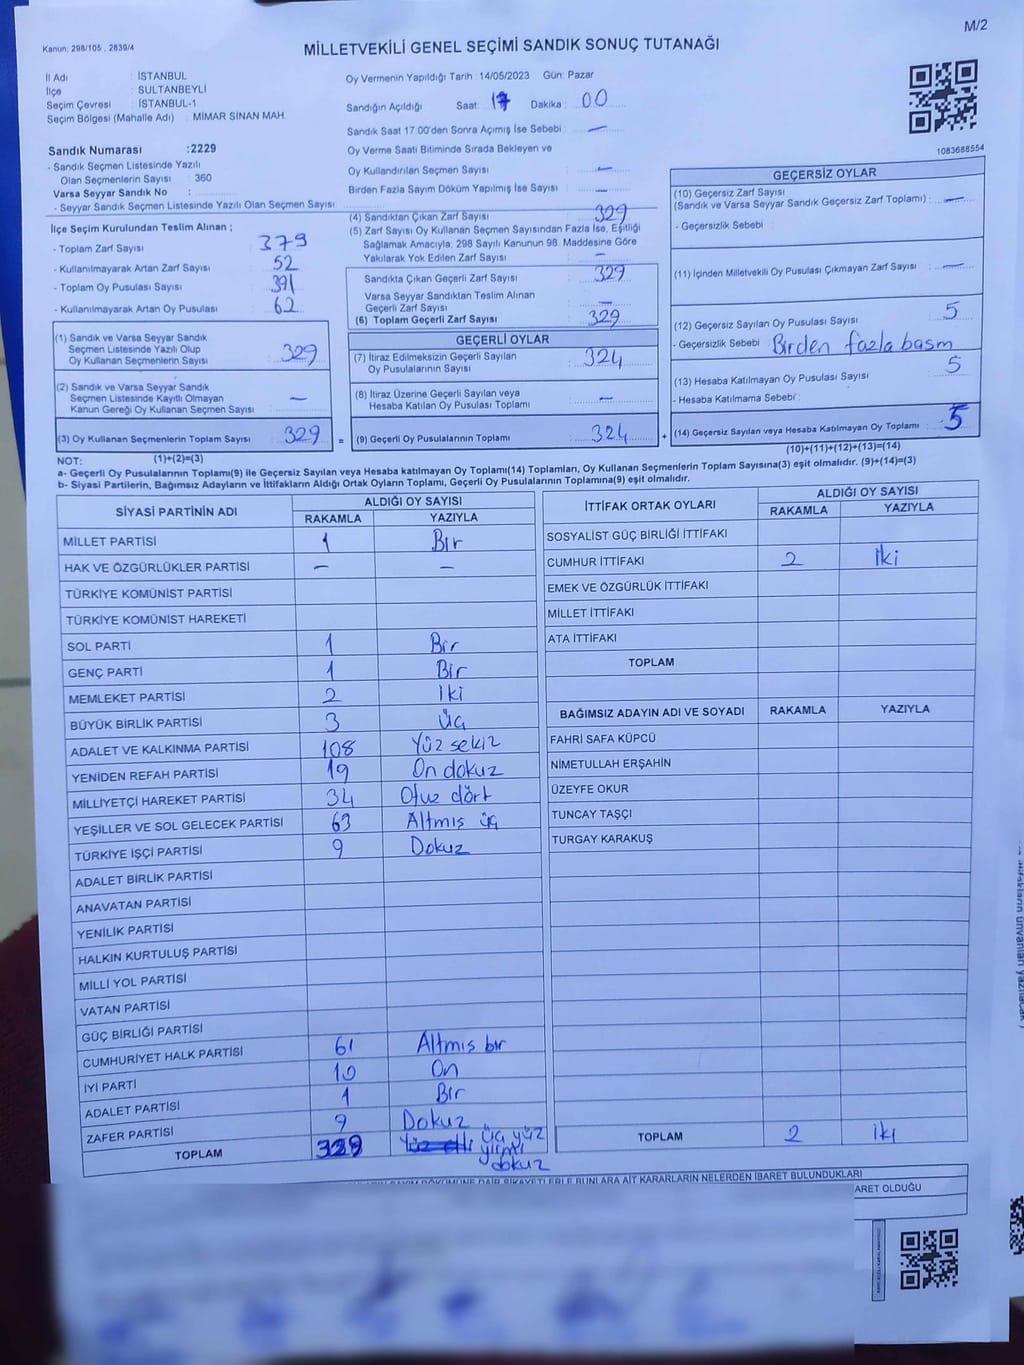 M/2
Kanun; 298/105 , 2839/4
MİLLETVEKİLİ GENEL SEÇİMİ SANDIK SONUÇ TUTANAĞI
İl Adı : İSTANBUL
İlçe : SULTANBEYLİ
Seçim Çevresi : İSTANBUL-1
Seçim Bölgesi (Mahalle Adı) : MİMAR SİNAN MAH.
Sandık Numarası :2229
- Sandık Seçmen Listesinde Yazılı
Olan Seçmenlerin Sayısı : 360
Varsa Seyyar Sandık No :
- Seyyar Sandık Seçmen Listesinde Yazılı Olan Seçmen Sayısı :
Oy Vermenin Yapıldığı Tarih :14/05/2023 Gün: Pazar
Sandığın Açıldığı Saat: 17 Dakika : 00
Sandık Saat 17.00'den Sonra Açımış İse Sebebi : —
Oy Verme Saati Bitiminde Sırada Bekleyen ve
Oy Kullandırılan Seçmen Sayısı : —
Birden Fazla Sayım Döküm Yapılmış İse Sayısı : —
1083688554
İlçe Seçim Kurulundan Teslim Alınan ;
- Toplam Zarf Sayısı : 379
- Kullanılmayarak Artan Zarf Sayısı : 52
- Toplam Oy Pusulası Sayısı : 391
- Kullanılmayarak Artan Oy Pusulası : 62
(1) Sandık ve Varsa Seyyar Sandık
Seçmen Listesinde Yazılı Olup
Oy Kullanan Seçmenlerin Sayısı : 329
(2) Sandık ve Varsa Seyyar Sandık
Seçmen Listesinde Kayıtlı Olmayan
Kanun Gereği Oy Kullanan Seçmen Sayısı : —
(3) Oy Kullanan Seçmenlerin Toplam Sayısı : 329 =
(1)+(2)=(3)
(4) Sandıktan Çıkan Zarf Sayısı : 329
(5) Zarf Sayısı Oy Kullanan Seçmen Sayısından Fazla İse, Eşitliği
Sağlamak Amacıyla; 298 Sayılı Kanunun 98. Maddesine Göre
Yakılarak Yok Edilen Zarf Sayısı : —
Sandıkta Çıkan Geçerli Zarf Sayısı : 329
Varsa Seyyar Sandıktan Teslim Alınan
Geçerli Zarf Sayısı : —
(6) Toplam Geçerli Zarf Sayısı : 329
GEÇERLİ OYLAR
(7) İtiraz Edilmeksizin Geçerli Sayılan
Oy Pusulalarının Sayısı : 324
(8) İtiraz Üzerine Geçerli Sayılan veya
Hesaba Katılan Oy Pusulası Toplamı : —
(9) Geçerli Oy Pusulalarının Toplamı : 324 +
GEÇERSİZ OYLAR
(10) Geçersiz Zarf Sayısı
(Sandık ve Varsa Seyyar Sandık Geçersiz Zarf Toplamı) : —
- Geçersizlik Sebebi :
(11) İçinden Milletvekili Oy Pusulası Çıkmayan Zarf Sayısı : —
(12) Geçersiz Sayılan Oy Pusulası Sayısı : 5
- Geçersizlik Sebebi : Birden fazla basm
(13) Hesaba Katılmayan Oy Pusulası Sayısı : 5
- Hesaba Katılmama Sebebi :
(14) Geçersiz Sayılan veya Hesaba Katılmayan Oy Toplamı : 5
(10)+(11)+(12)+(13)=(14)
NOT:
a- Geçerli Oy Pusulalarının Toplamı(9) ile Geçersiz Sayılan veya Hesaba katılmayan Oy Toplamı(14) Toplamları, Oy Kullanan Seçmenlerin Toplam Sayısına(3) eşit olmalıdır. (9)+(14)=(3)
b- Siyasi Partilerin, Bağımsız Adayların ve İttifakların Aldığı Ortak Oyların Toplamı, Geçerli Oy Pusulalarının Toplamına(9) eşit olmalıdır.
SİYASİ PARTİNİN ADI ALDIĞI OY SAYISI
RAKAMLA YAZIYLA
MİLLET PARTİSİ 1 Bir
HAK VE ÖZGÜRLÜKLER PARTİSİ — —
TÜRKİYE KOMÜNİST PARTİSİ
TÜRKİYE KOMÜNİST HAREKETİ
SOL PARTİ 1 Bir
GENÇ PARTİ 1 Bir
MEMLEKET PARTİSİ 2 İki
BÜYÜK BİRLİK PARTİSİ 3 Üç
ADALET VE KALKINMA PARTİSİ 108 Yüz sekiz
YENİDEN REFAH PARTİSİ 19 On dokuz
MİLLİYETÇİ HAREKET PARTİSİ 34 Otuz dört
YEŞİLLER VE SOL GELECEK PARTİSİ 63 Altmış üç
TÜRKİYE İŞÇİ PARTİSİ 9 Dokuz
ADALET BİRLİK PARTİSİ
ANAVATAN PARTİSİ
YENİLİK PARTİSİ
HALKIN KURTULUŞ PARTİSİ
MİLLİ YOL PARTİSİ
VATAN PARTİSİ
GÜÇ BİRLİĞİ PARTİSİ
CUMHURİYET HALK PARTİSİ 61 Altmış bir
İYİ PARTİ 10 On
ADALET PARTİSİ 1 Bir
ZAFER PARTİSİ 9 Dokuz
TOPLAM 329 üç yüz
yirmi
dokuz
İTTİFAK ORTAK OYLARI ALDIĞI OY SAYISI
RAKAMLA YAZIYLA
SOSYALİST GÜÇ BİRLİĞİ İTTİFAKI
CUMHUR İTTİFAKI 2 İki
EMEK VE ÖZGÜRLÜK İTTİFAKI
MİLLET İTTİFAKI
ATA İTTİFAKI
TOPLAM
BAĞIMSIZ ADAYIN ADI VE SOYADI RAKAMLA YAZIYLA
FAHRİ SAFA KÜPCÜ
NİMETULLAH ERŞAHİN
ÜZEYFE OKUR
TUNCAY TAŞÇI
TURGAY KARAKUŞ
TOPLAM 2 İki
DÖKÜMÜNE DAİR ŞİKAYETLERLE BUNLARA AİT KARARLARIN NELERDEN İBARET BULUNDUKLARI
ARET OLDUĞU